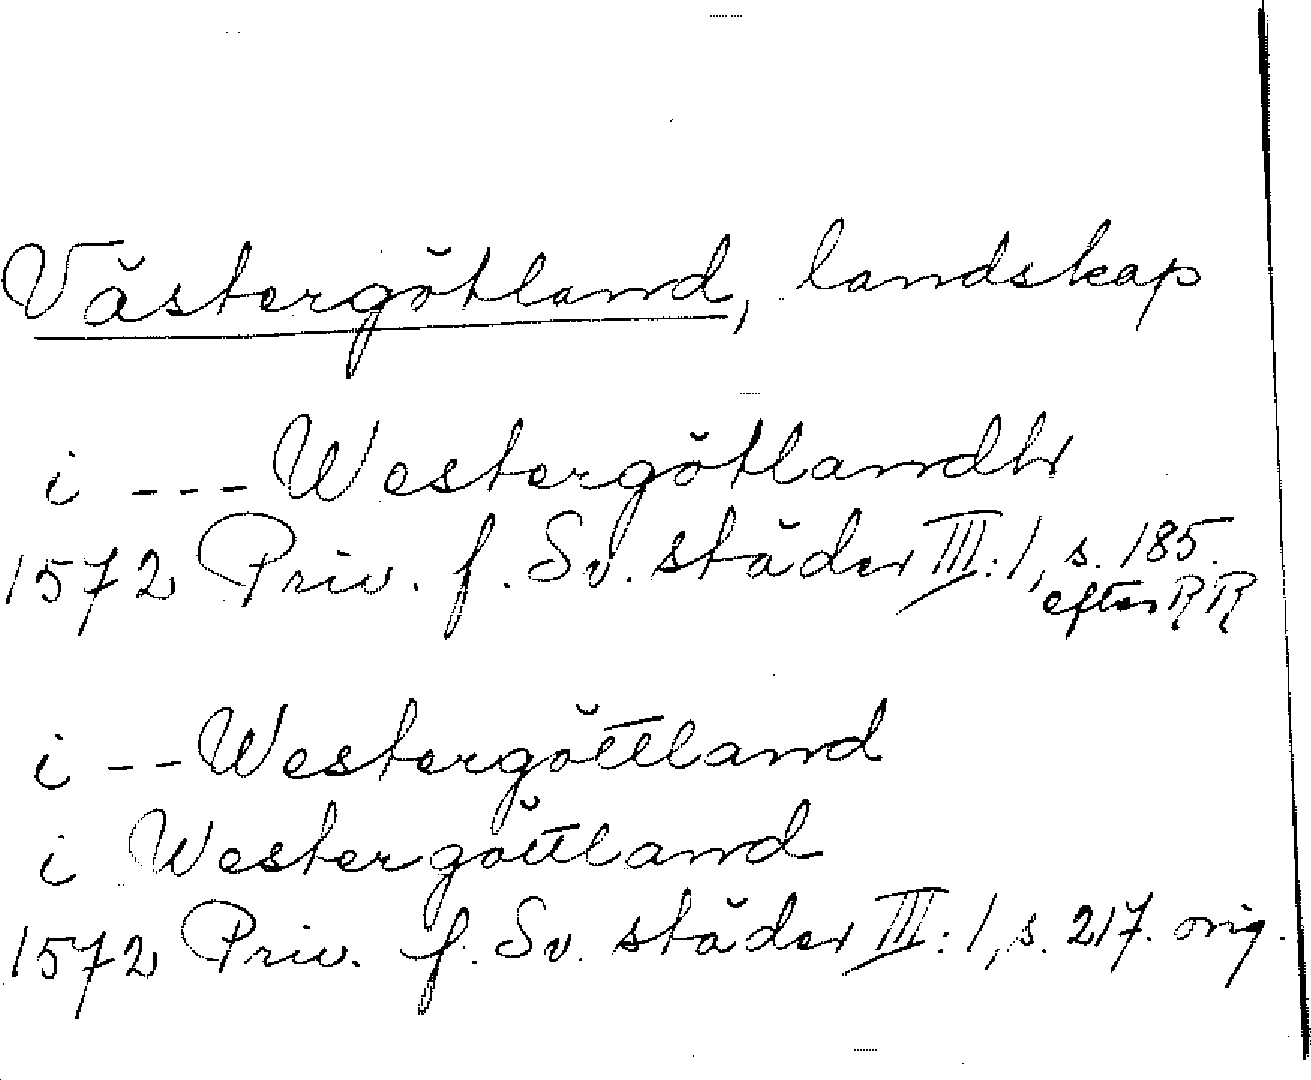 Västergötland, landskap
i --- Westergötlandh
1572 Priv. f. Sv. städer III:1, s. 185.
efter RR
i -- Westergöttland
i Westergöttland
1572 Priv. f. Sv. städer III:1, s. 217. orig.